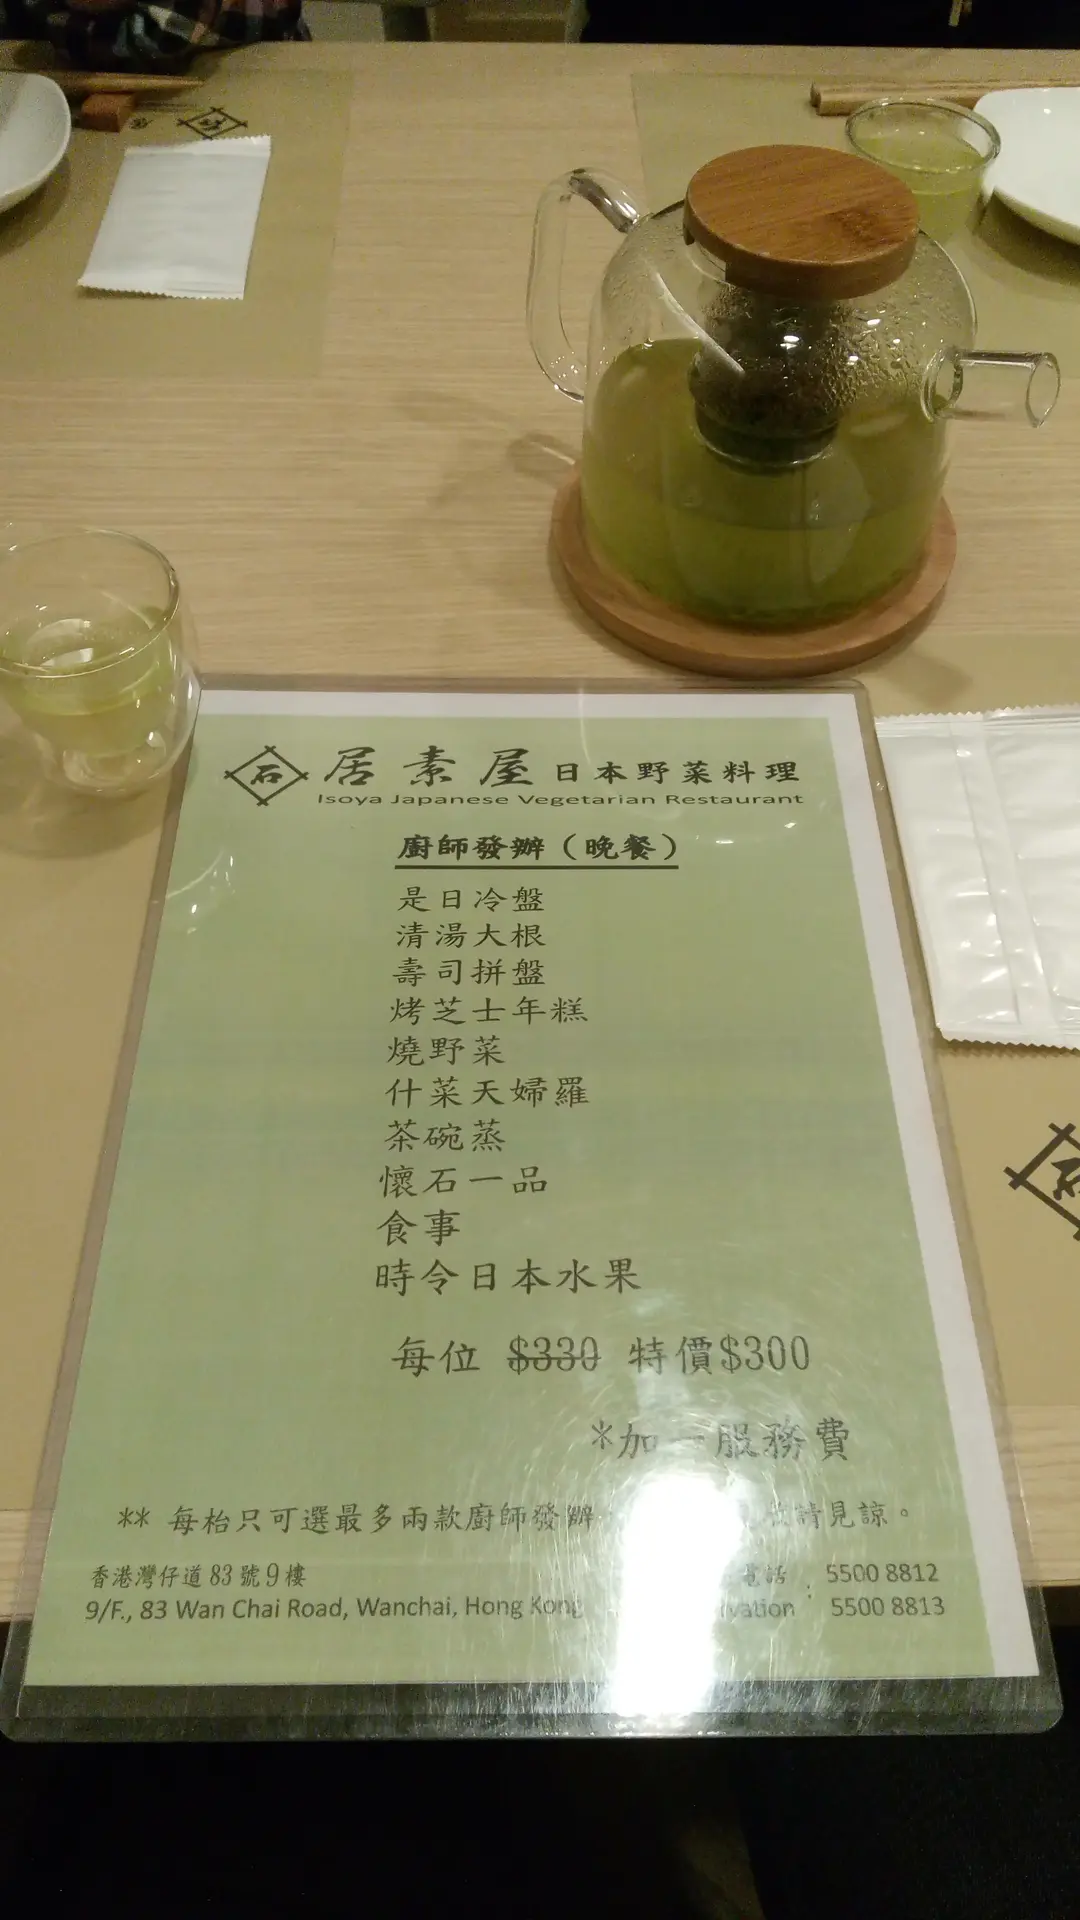 石 居素屋 日本野菜料理
Isoya Japanese Vegetarian Restaurant
廚師發辦（晚餐）
是日冷盤
清湯大根
壽司拼盤
烤芝士年糕
燒野菜
什菜天婦羅
茶碗蒸
懷石一品
食事
時令日本水果
每位 $330 特價$300
*加一服務費
** 每枱只可選最多兩款廚師發辦 請見諒。
香港灣仔道83號9樓 電話 : 5500 8812
9/F., 83 Wan Chai Road, Wanchai, Hong Kong 5500 8813